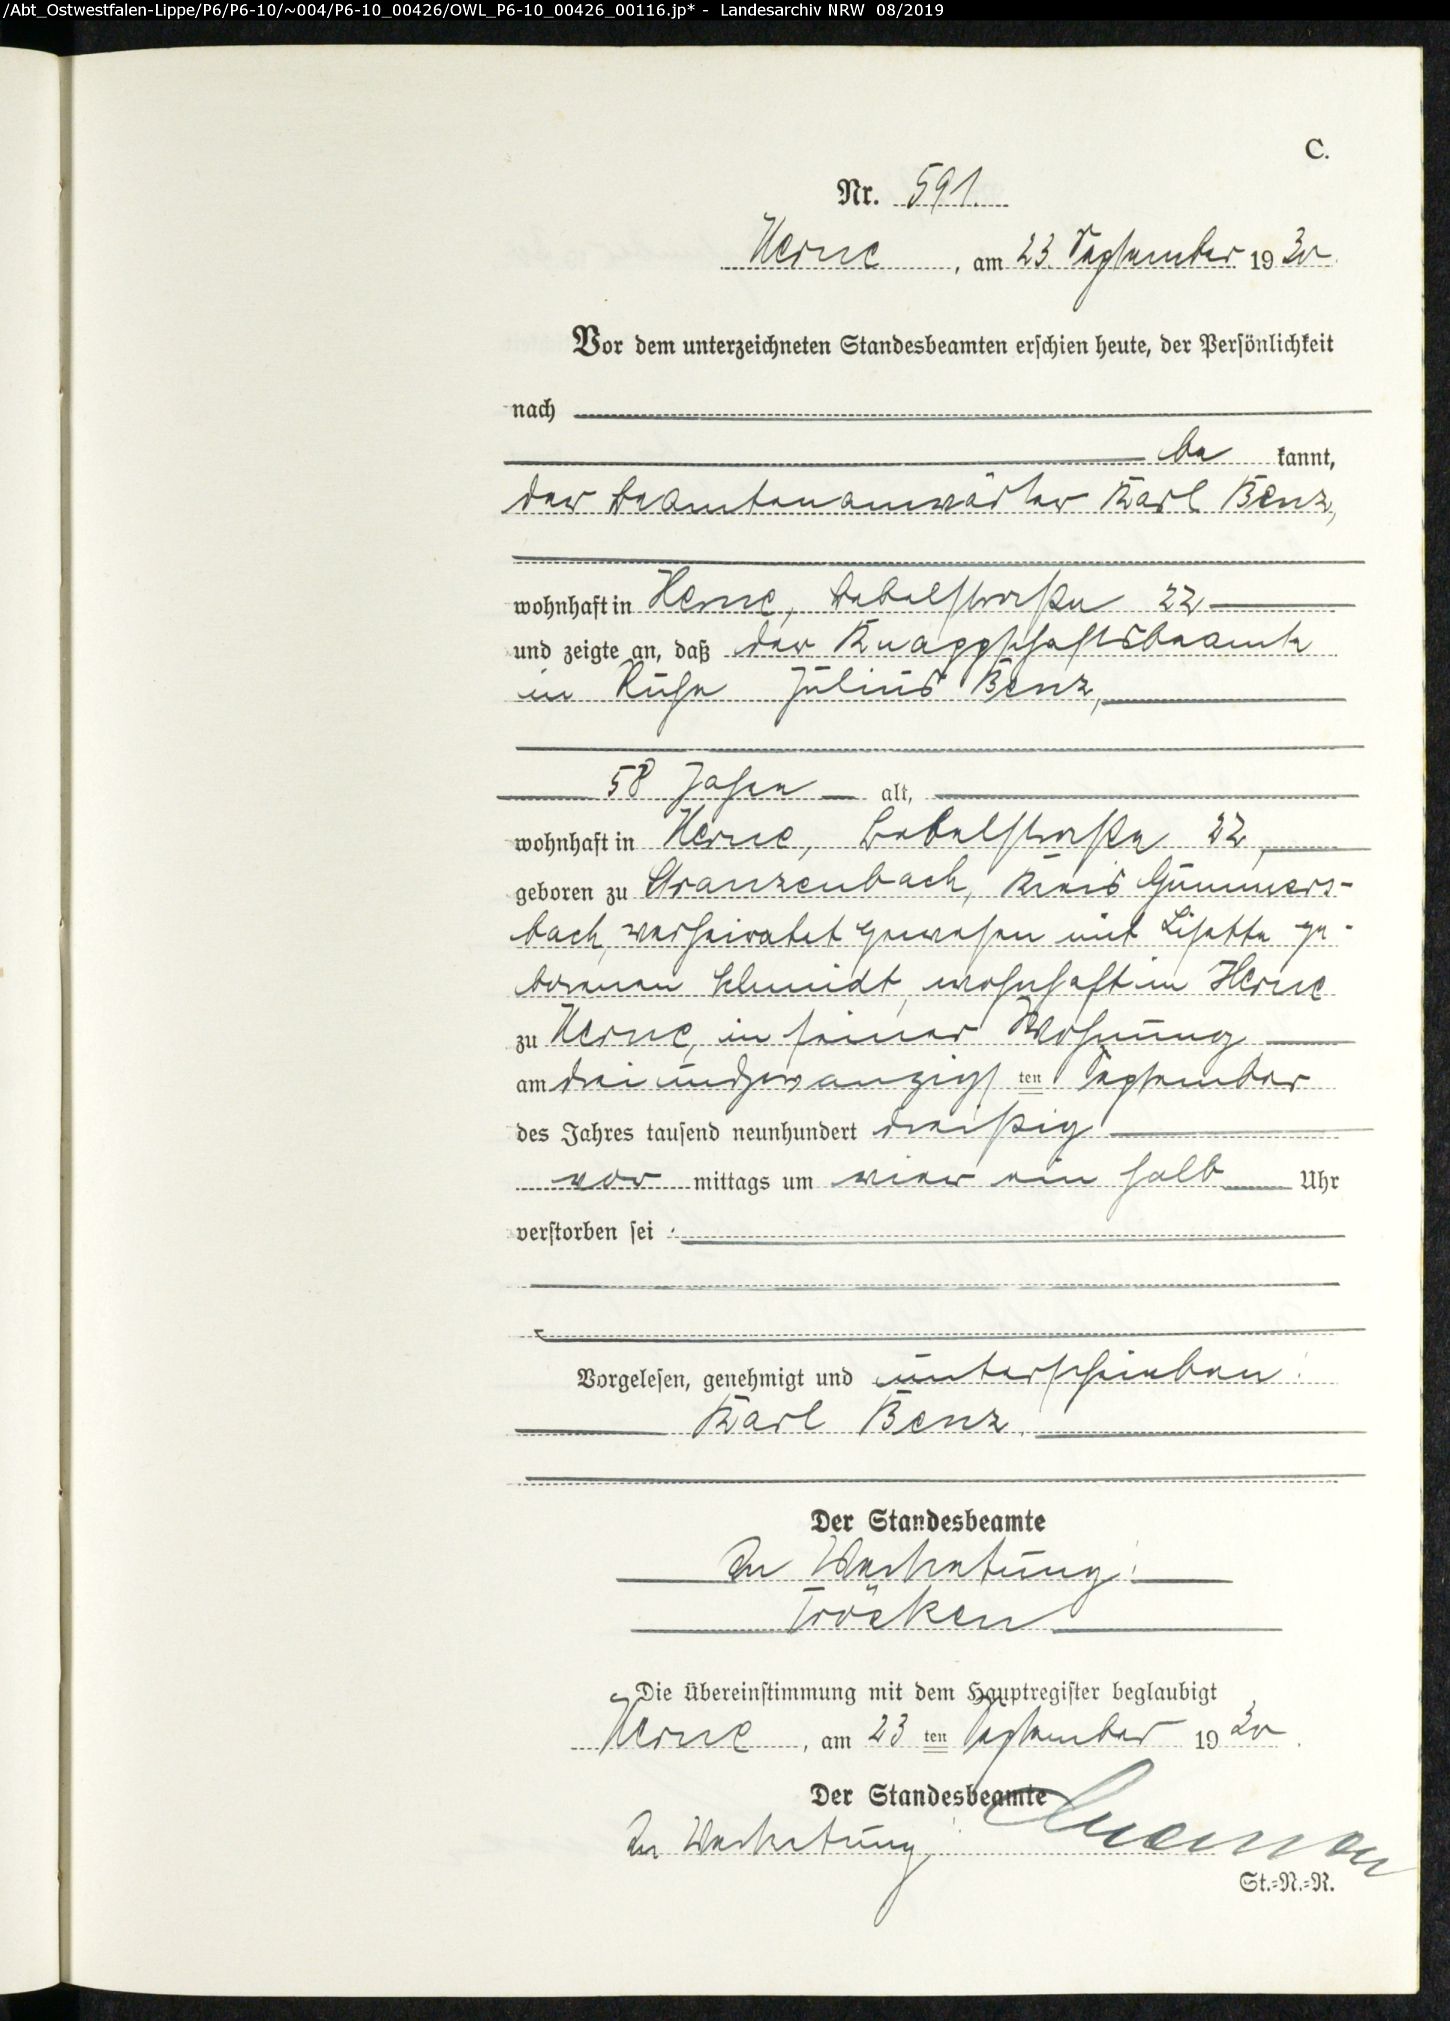 /Abt_Ostwestfalen-Lippe/P6/P6-10/~004/P6-10_00426/OWL_P6-10_00426_00116.jp* - Landesarchiv NRW 08/2019
C.
Nr. 591.
Herne, am 23. September 1930.
Vor dem unterzeichneten Standesbeamten erschien heute, der Persönlichkeit
nach
be kannt,
der Beamtenanwärter Karl Benz,
wohnhaft in Herne, Bebelstraße 22
und zeigte an, daß der Knappschaftsbeamte
in Ruhe Julius Benz,
58 Jahre alt,
wohnhaft in Herne, Bebelstraße 22,
geboren zu Kranzenbach, Kreis Gummers-
bach, verheiratet gewesen mit Lisette ge-
borenen Schmidt, wohnhaft in Herne
zu Herne, in seiner Wohnung
am dreiundzwanzigsten September
des Jahres tausend neunhundert dreißig
vor mittags um vier ein halb Uhr
verstorben sei.
Vorgelesen, genehmigt und unterschrieben:
Karl Benz.
Der Standesbeamte
In Vertretung:
Tröcken
Die Übereinstimmung mit dem Hauptregister beglaubigt
Herne, am 23 ten September 1930.
Der Standesbeamte
In Vertretung:
St.=N.=R.